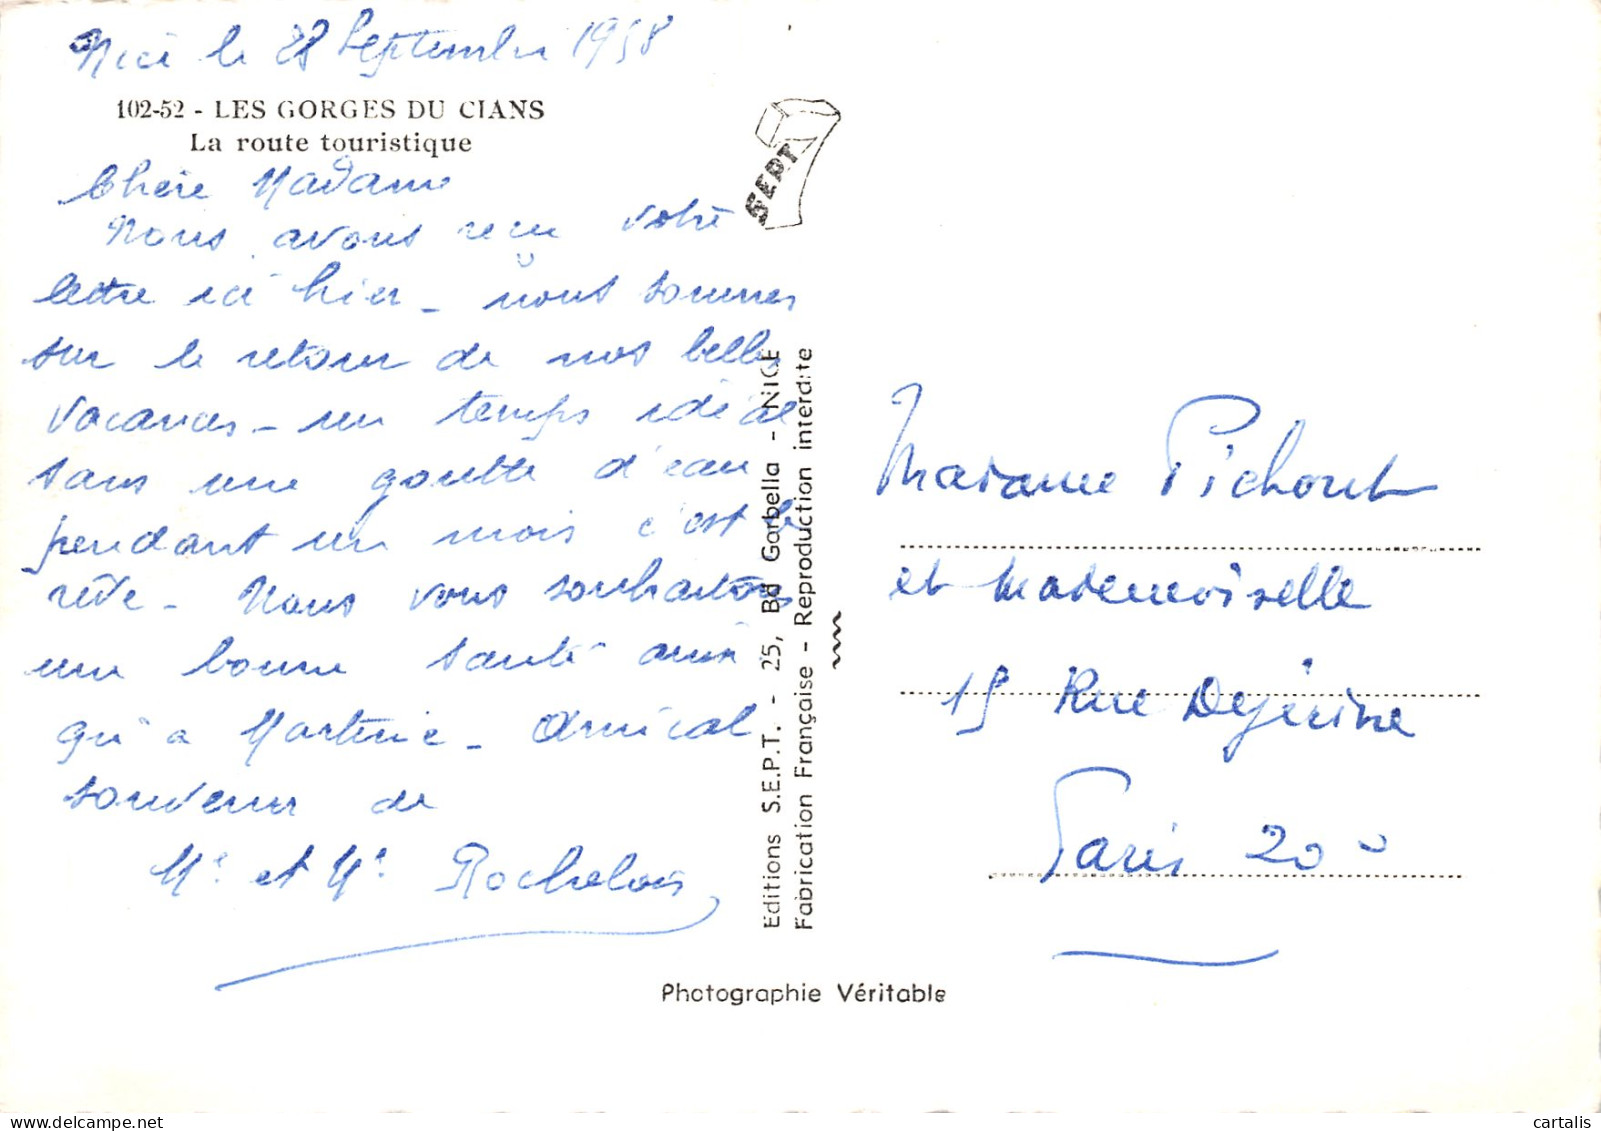 Nice le 28 Septembre 1958
102-52 - LES GORGES DU CIANS
La route touristique
Chère Madame
Nous avons reçu votre
lettre ici hier - nous sommes
sur le retour de nos belles
vacances - un temps idéal
sans une goutte d'eau
pendant un mois c'est le
rêve - Nous vous souhaitons
une bonne santé ainsi
qu'a Martine - Amical
souvenir de
Mr et Me Rochelois
SEPT
Editions S.E.P.T. - 25, Bd Garbella - NICE
Fabrication Française - Reproduction interdite
Madame Pichoult
et Mademoiselle
15 Rue Dejerine
Paris 20e
Photographie Véritable
cartalis sur Delcampe.net